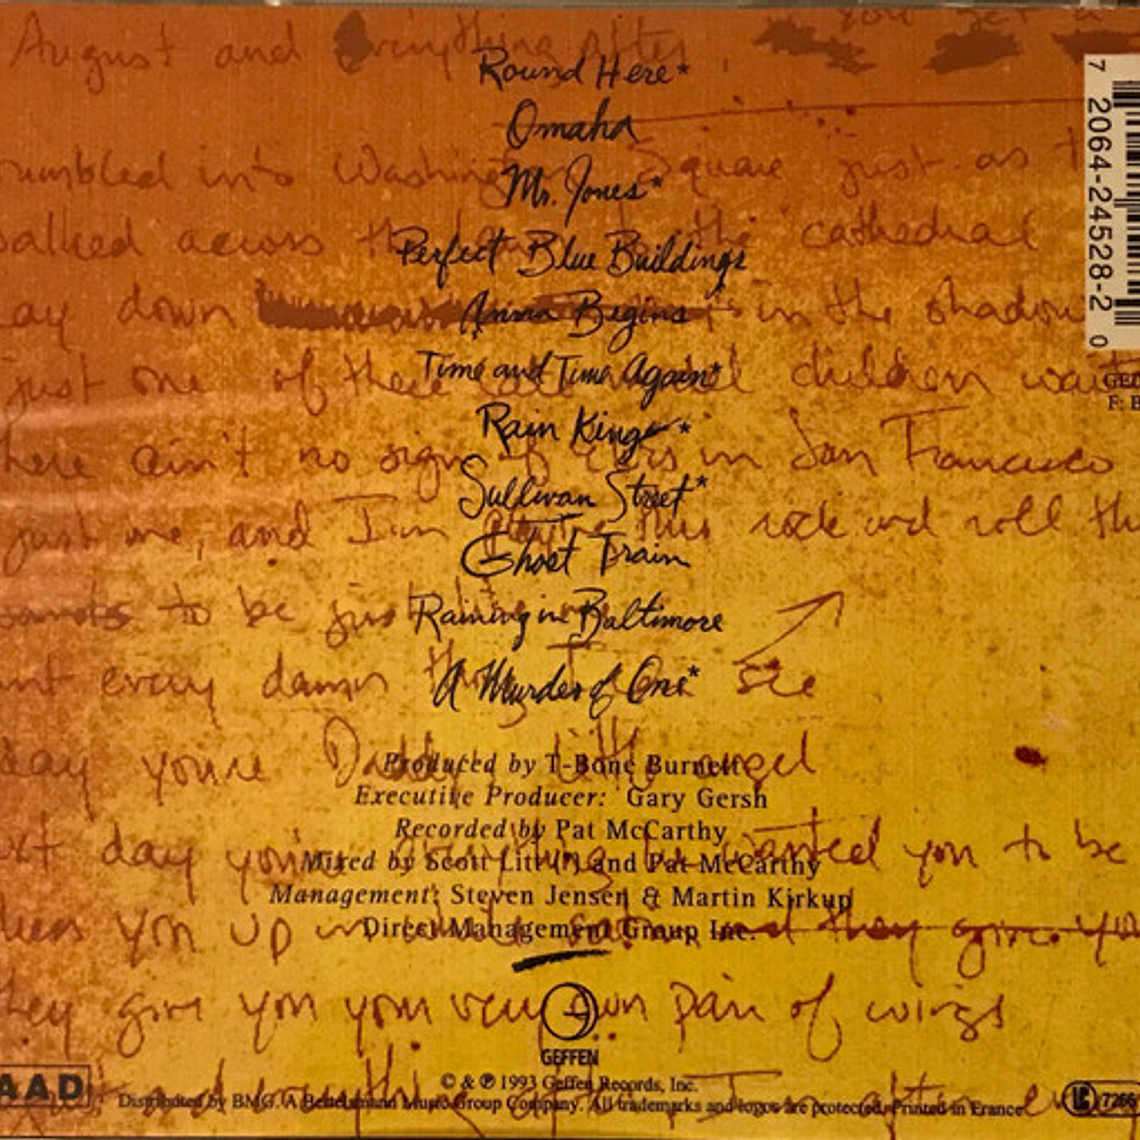 August and everything after
you get a
Round Here*
Omaha
rumbled into Washington Square just as t
Mr. Jones*
walked across the the cathedral
Perfect Blue Buildings
lay down in the shadow
Anna Begins
just one of these children wait
Time and Time Again*
Rain King *
here ain't no sign of in San Francisco
Sullivan Street*
just me, and I'm this rock and roll th
Ghost Train
to be just
Raining in Baltimore
every damn see
A Murder of One*
day you're Daddy's little angel
Produced by T-Bone Burnett
Executive Producer: Gary Gersh
Recorded by Pat McCarthy
day you're everything wanted you to be
Mixed by Scott Litt and Pat McCarthy
Management: Steven Jensen & Martin Kirkup
you up in and they give you
Direct Management Group Inc.
they give you your very own pair of wings
GEFFEN
© & ℗ 1993 Geffen Records, Inc.
and everything after
Distributed by BMG. A Bertelsmann Music Group Company. All trademarks and logos are protected. Printed in France
AAD
LC 7266
7 2064-24528-2 0
GEF
F: B